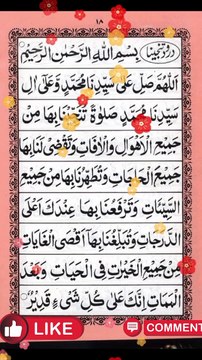 ١٨
درود تنجینا
بِسْمِ اللهِ الرَّحْمٰنِ الرَّحِيْمِ
اَللّٰهُمَّ صَلِّ عَلٰى سَيِّدِنَا مُحَمَّدٍ وَّعَلٰٓى اٰلِ
سَيِّدِنَا مُحَمَّدٍ صَلٰوةً تُنَجِّيْنَا بِهَا مِنْ
جَمِيْعِ الْاَهْوَالِ وَالْاٰفَاتِ وَتَقْضِىْ لَنَا بِهَا
جَمِيْعَ الْحَاجَاتِ وَتُطَهِّرُنَا بِهَا مِنْ جَمِيْعِ
السَّيِّئَاتِ وَتَرْفَعُنَا بِهَا عِنْدَكَ اَعْلَى
الدَّرَجَاتِ وَتُبَلِّغُنَا بِهَا اَقْصَى الْغَايَاتِ
مِنْ جَمِيْعِ الْخَيْرَاتِ فِى الْحَيَاتِ وَبَعْدَ
الْمَمَاتِ اِنَّكَ عَلٰى كُلِّ شَىْءٍ قَدِيْرٌ
LIKE
COMMENT